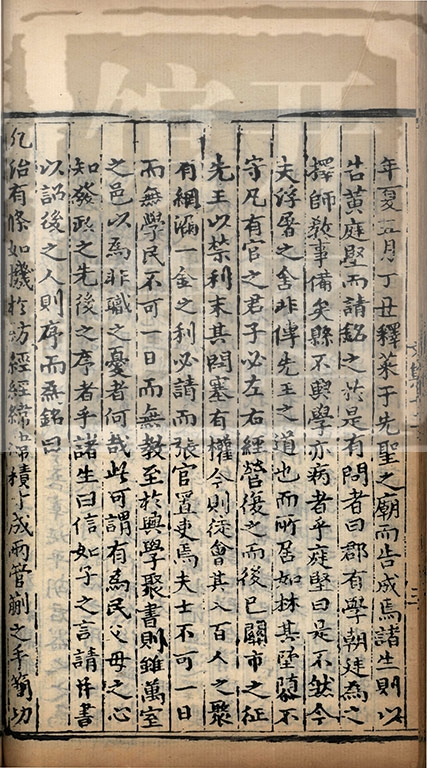 年夏五月丁丑釋菜于先聖之廟而告成焉諸生則以
告黃庭堅而請銘之於是有問者曰郡有學朝廷為之
擇師敎事備矣縣不興學亦病者乎庭堅曰是不然今
夫浮屠之舍非傳先王之道也而所居如林其墮隳不
守凡有官之君子必左右經營後之而後已關市之征
先王以禁利末其開塞有權今則徒會其入百人之聚
有網漏一金之利必請而張官置吏焉夫士不可一日
而無學民不可一日而無教至於興學聚書則雖萬室
之邑以為非職之憂者何哉此可謂有為民父母之心
知發政之先後之序者乎諸生曰信如子之言請幷書
以詔後之人則序而為銘曰
凡治有條如機於紡經經緯緯積寸成兩管蒯之手簡功